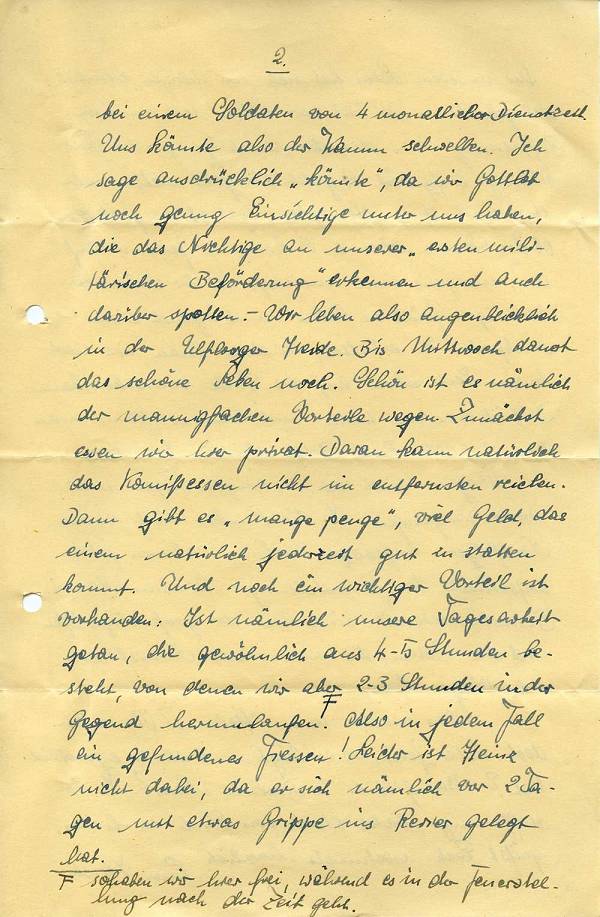 2.
bei einem Soldaten von 4 monatlicher Dienstzeit.
Uns könnte also der Kamm schwellen. Ich
sage ausdrücklich „könnte", da wir Gottlob
noch genug Einsichtige unter uns haben,
die das Nichtige an unserer „ersten mili-
tärischen Beförderung" erkennen und auch
darüber spotten. – Wir leben also augenblicklich
in der Heide. Bis Mittwoch dauert
das schöne Leben noch. Schön ist es nämlich
der mannigfachen Vorteile wegen. Zunächst
essen wir hier privat. Daran kann natürlich
das Komißessen nicht im entferntesten reichen.
Dann gibt es „mange penge", viel Geld, das
einem natürlich jederzeit gut in statten
kommt. Und noch ein wichtiger Vorteil ist
vorhanden: Ist nämlich unsere Tagesarbeit
getan, die gewöhnlich aus 4-5 Stunden be-
steht, von denen wir aber 2-3 Stunden in der
Gegend herumlaufen! F Also in jedem Fall
ein gefundenes Fressen! Leider ist Heinz
nicht dabei, da er sich nämlich vor 2 Ta-
gen mit etwas Grippe ins Revier gelegt
hat.
F so haben wir hier frei, während es in der Feuerstel-
lung nach der Zeit geht.